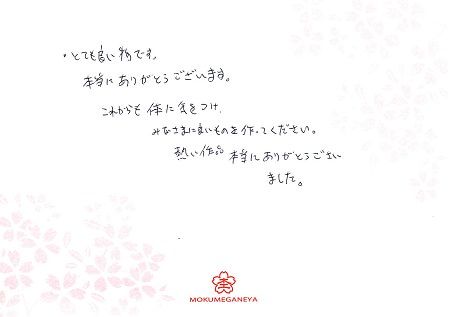 ・とても良い物です。
本当にありがとうございます。
これからも体に気をつけ、
みなさまに良いものを作ってください。
熱い作品 本当にありがとうござい
ました。
MOKUMEGANEYA